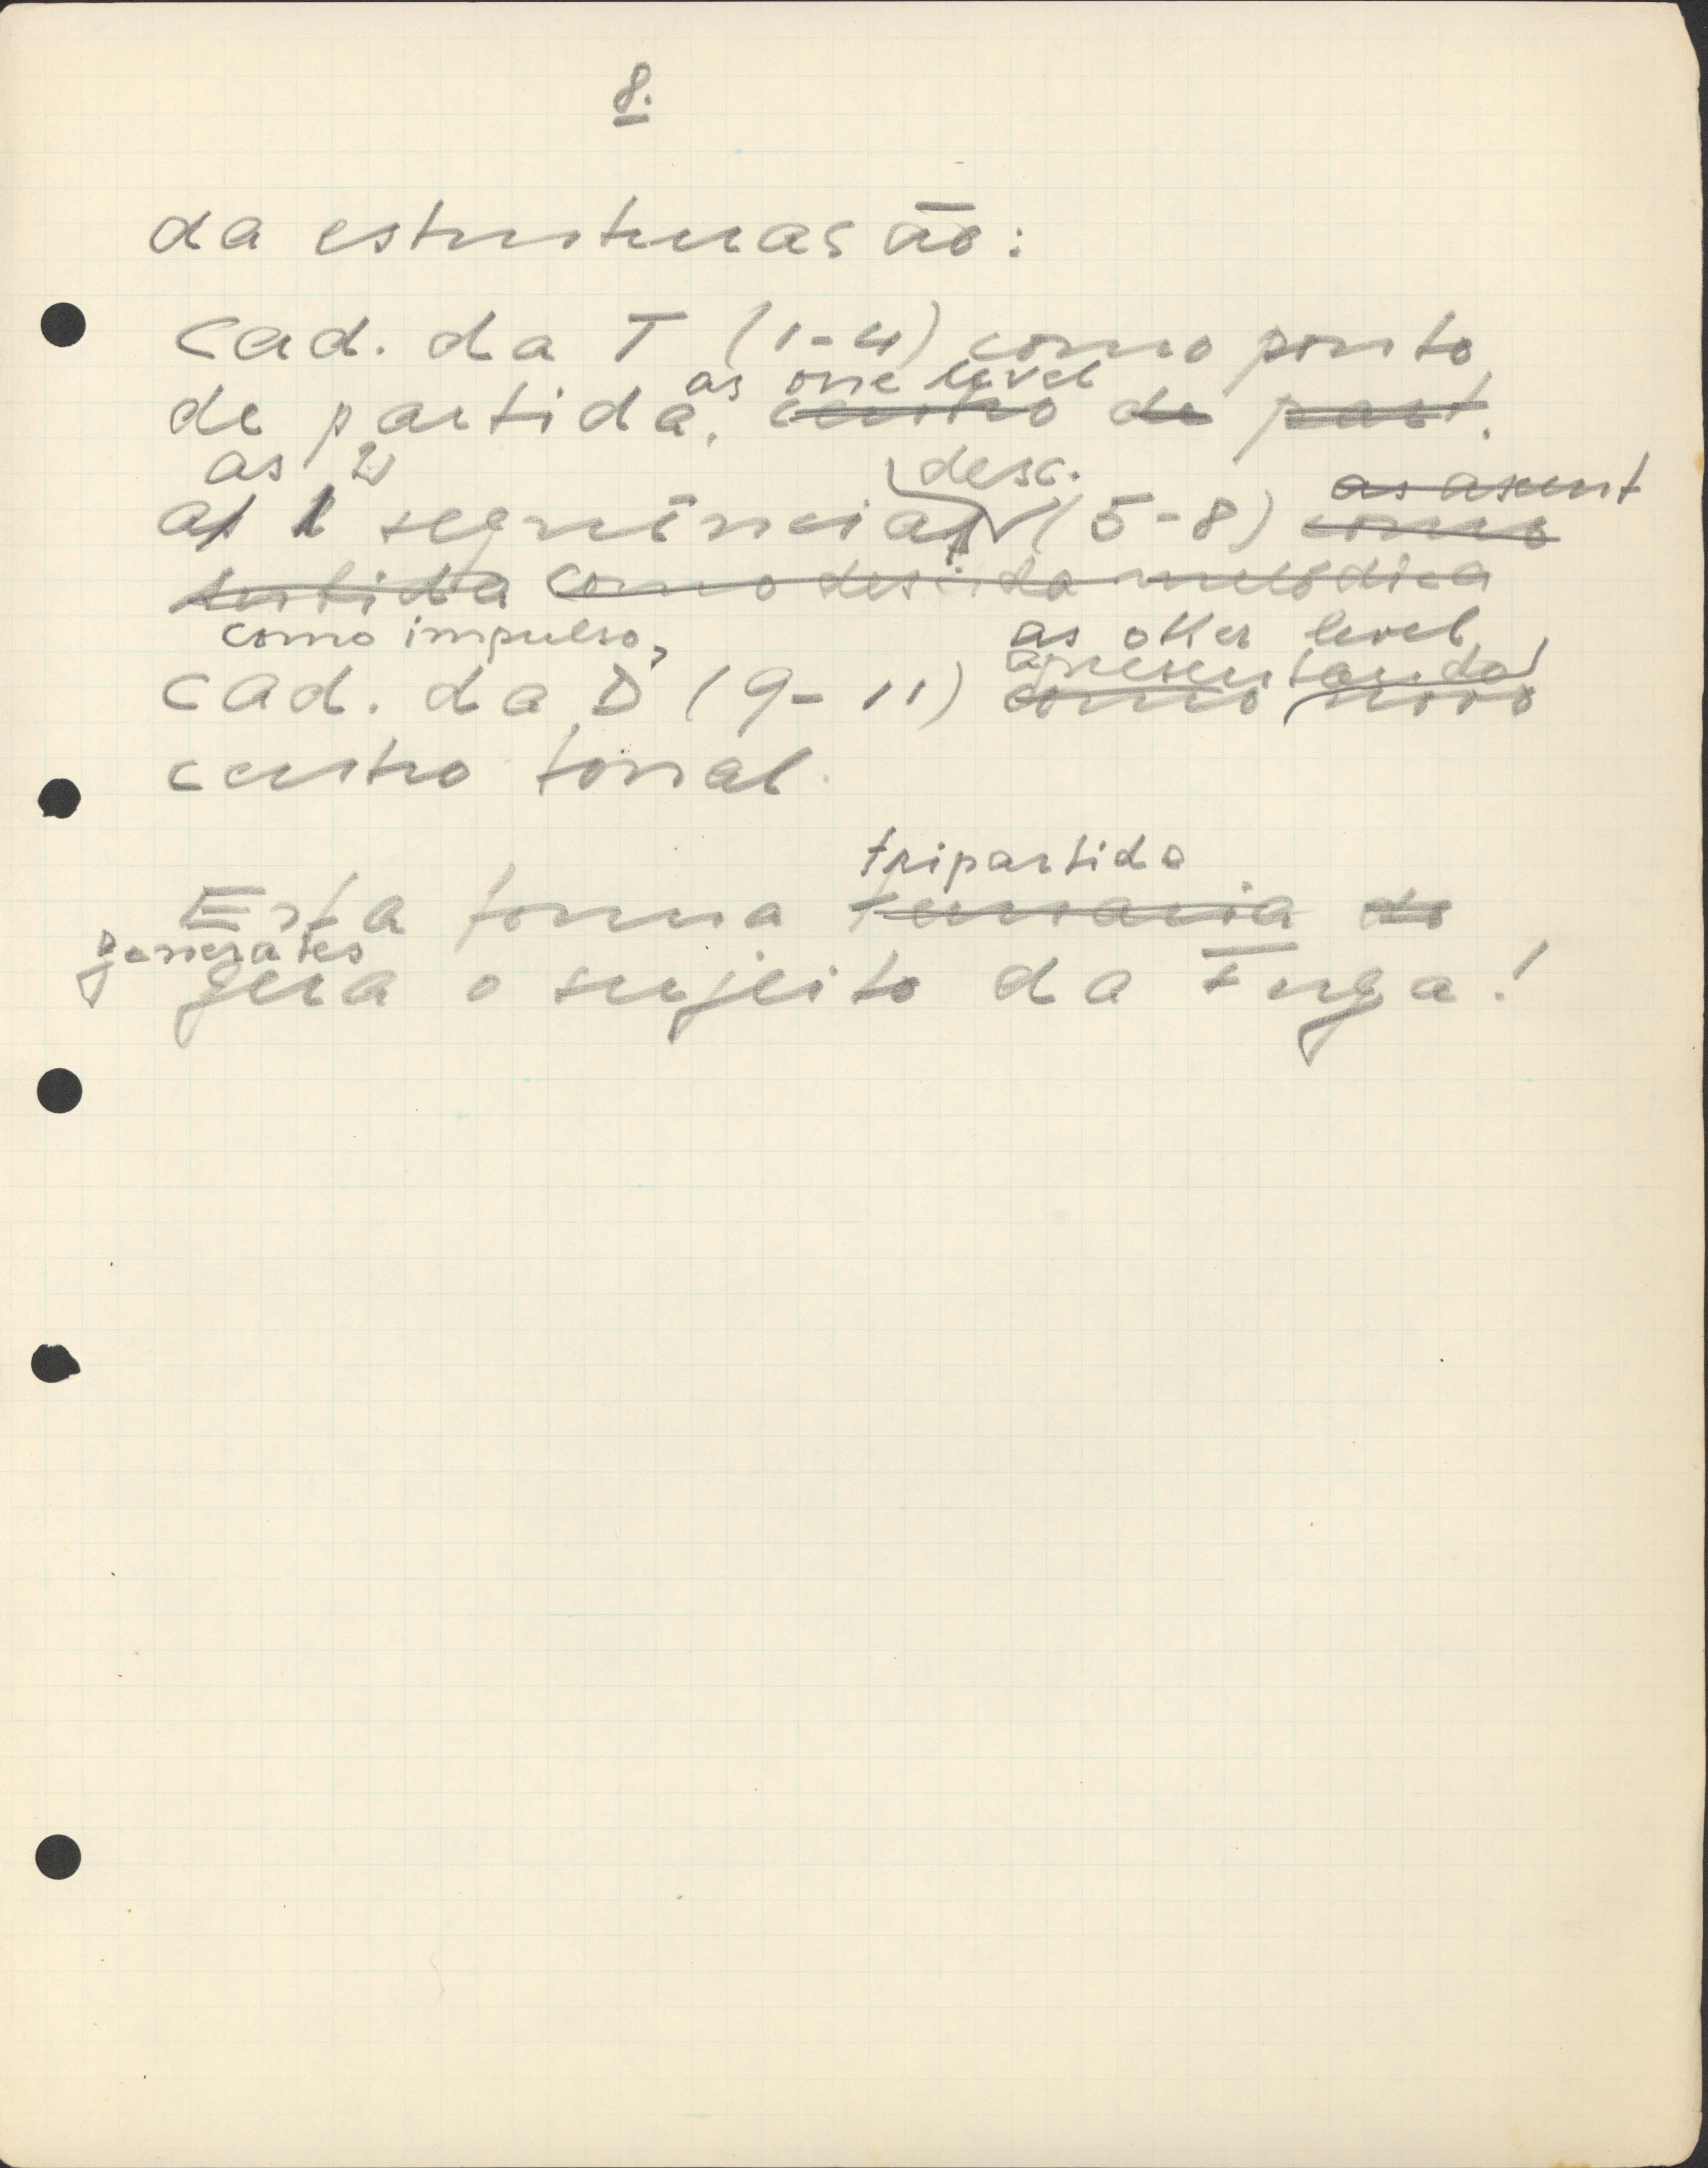 8.
da estruturação:
Cad. da T (1-4) como ponto
as one level
de partida, centro de part.
as 2 desc. as ascent
a 1 sequência (5-8) como
subida como descida melódica
como impulso, as other level,
apresentando
Cad. da D (9-11) como novo
centro tonal.
tripartida
Esta forma ternaria do
generates
gera o sujeito da Fuga!